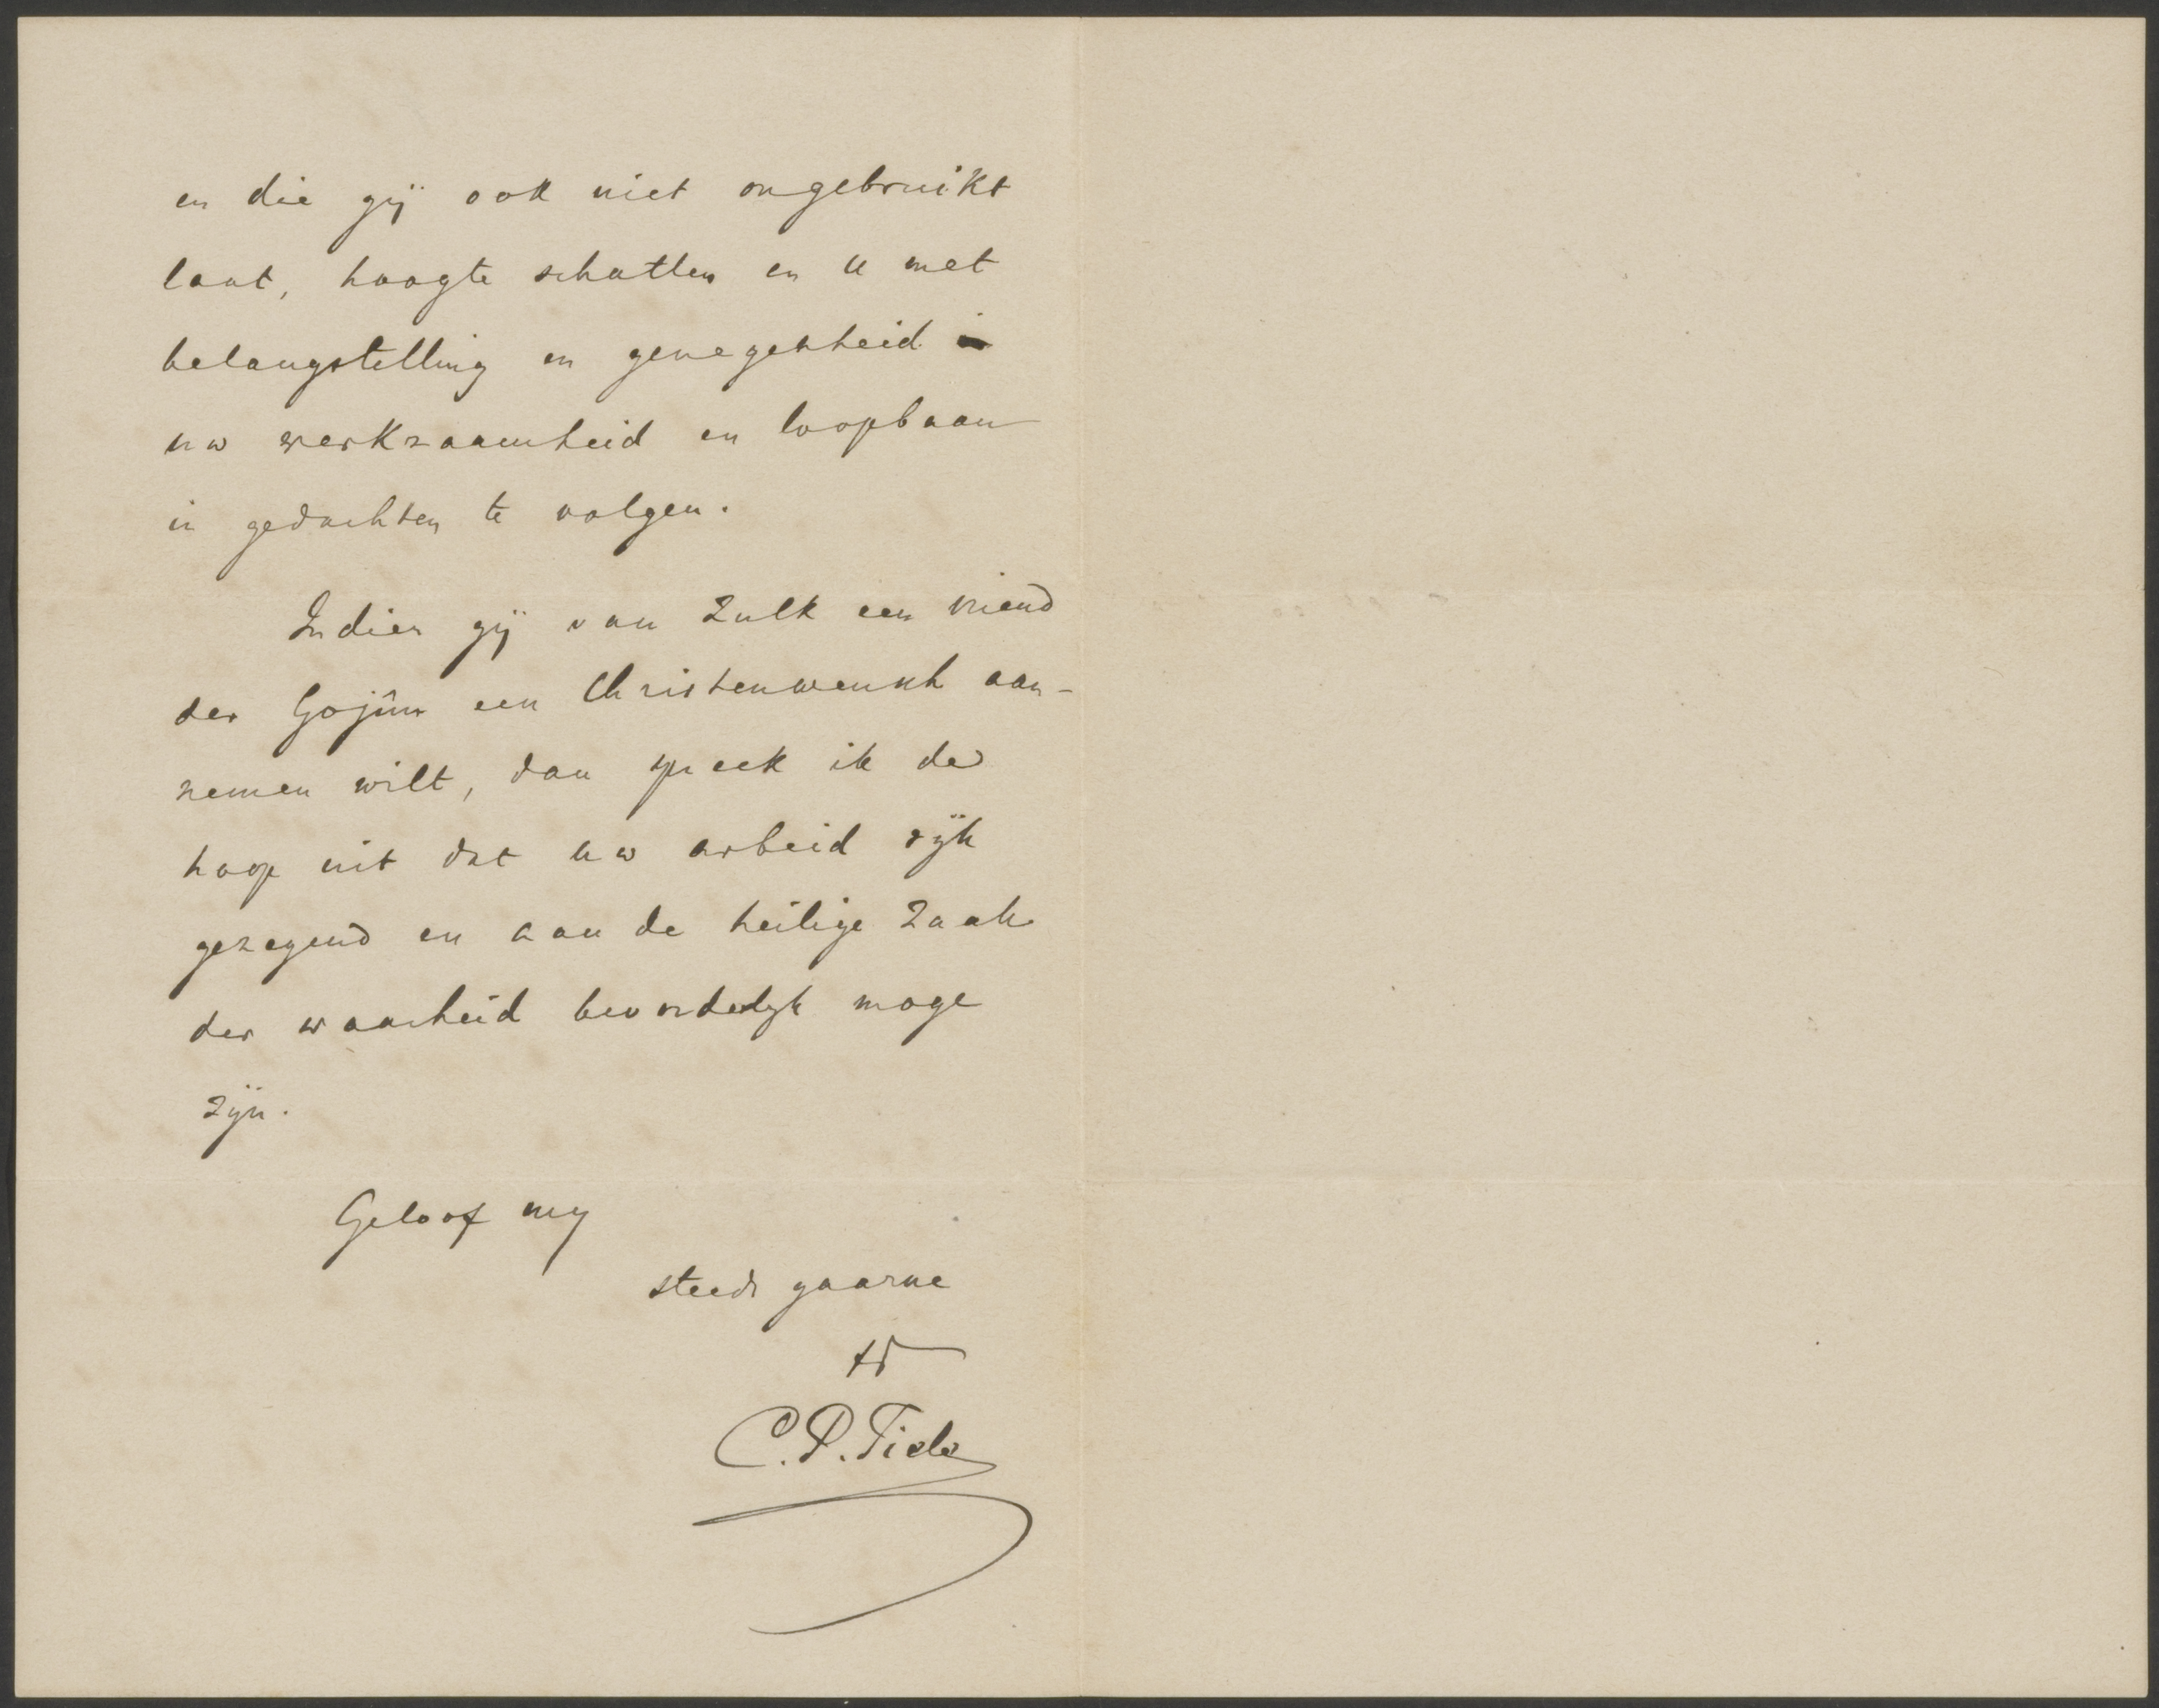 en die gij ook niet ongebruikt
laat, hoogte schatten en U met
belangstelling en genegenheid
uw werkzaamheid en loopbaan
in gedachten te volgen.
Indien gij van zulk een vriend
der Gojîm een Christenwensch aan-
nemen wilt, dan spreek ik de
hoop uit dat uw arbeid rijk
gezegend en aan de heilige zaak
der waarheid bevorderlijk moge
zijn.
Geloof mij
steeds gaarne
C.P. Tiele